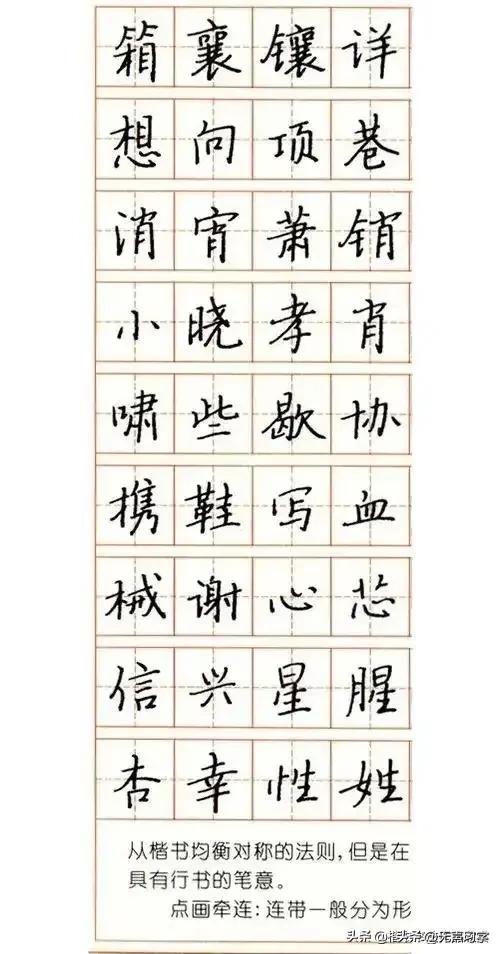 箱襄镶详
想向项巷
消宵萧销
小晓孝肖
啸些歇协
携鞋写血
械谢心芯
信兴星腥
杏幸性姓
从楷书均衡对称的法则,但是在
具有行书的笔意。
点画牵连:连带一般分为形
头条